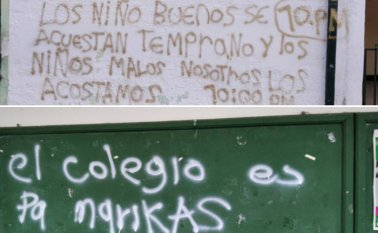 LOS NIÑO BUENOS SE 10.PM
ACUESTAN TEMPRANO Y LOS
NIÑOS MALOS NOSOTROS LOS
ACOSTAMOS 10:00 PM
el colegio es
pa marikAS